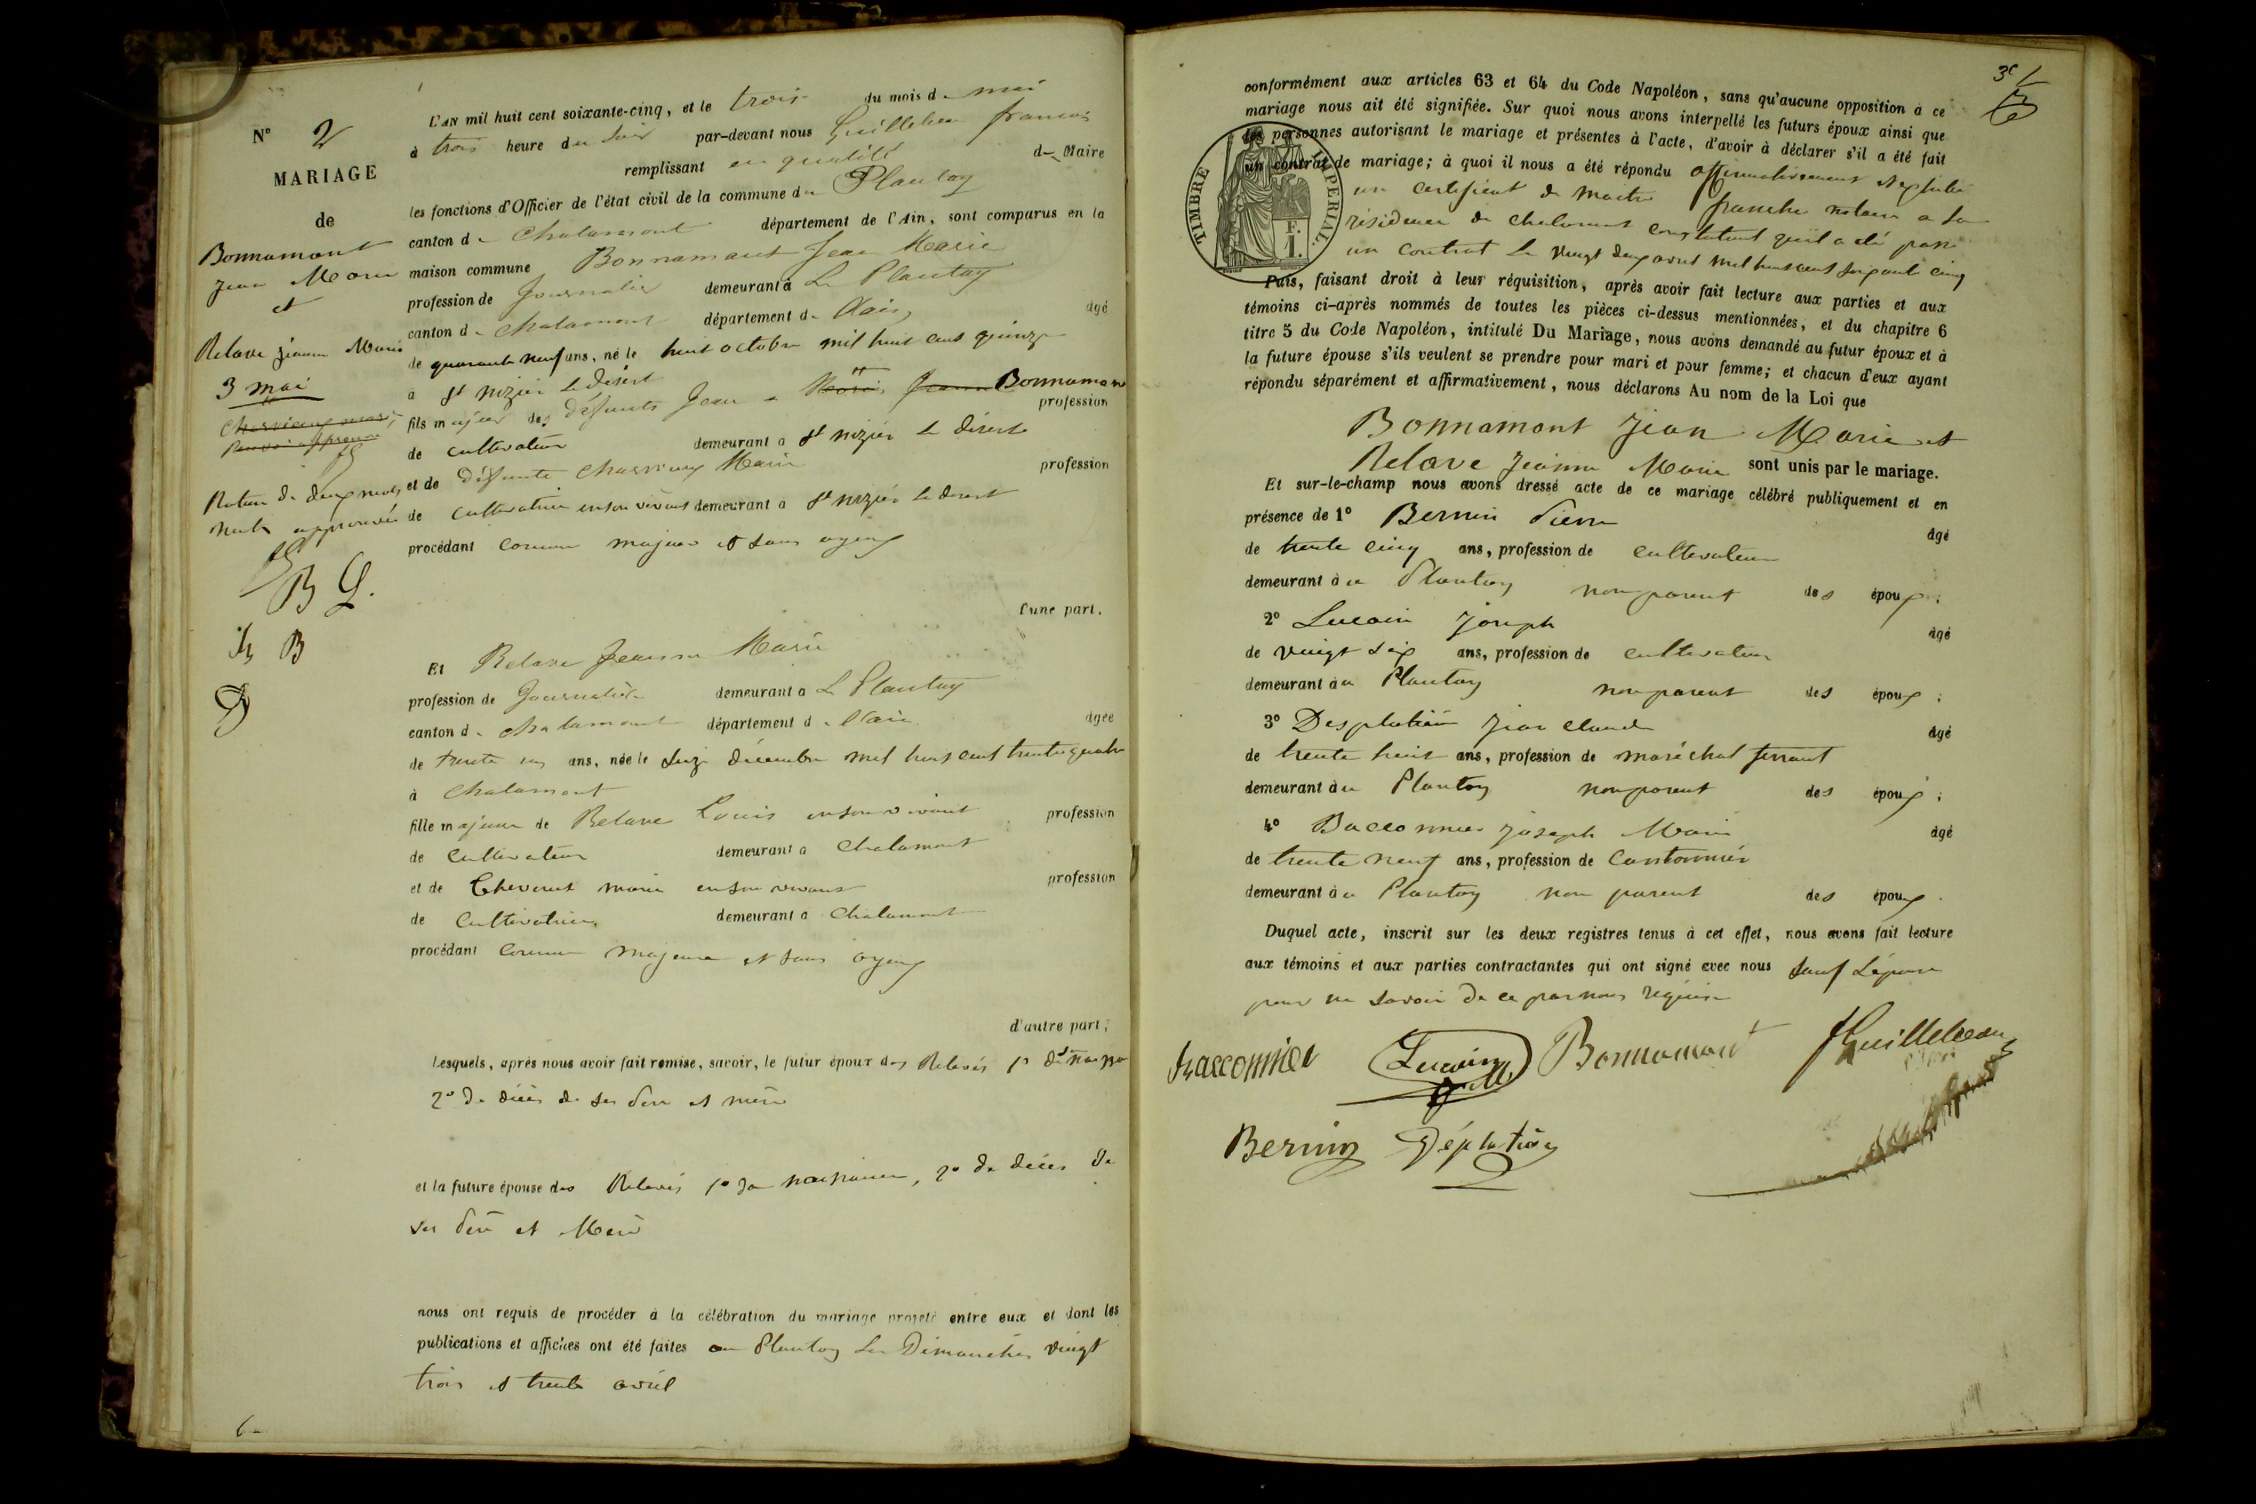 N° 2
MARIAGE
de
Bonnamont
Jean Marie
et
Relave Jeanne Marie
3 mai
Rature de deux mots
nuls approuvée
B G.
B
L'AN mil huit cent soixante-cinq, et le trois du mois de mai
à trois heure du soir par-devant nous Guillebeau françois
remplissant en qualité de Maire
les fonctions d'Officier de l'état civil de la commune du Plantay
canton de Chalamont département de l'Ain, sont comparus en la
maison commune Bonnamont Jean Marie
profession de Journalier demeurant à Le Plantay
canton de Chalamont département de l'ain, âgé
de quarante neuf ans, né le huit octobre mil huit cent quinze
à St nizier le désert
fils majeur des défunts Jean Bonnamont profession
de cultivateur demeurant à St nizier le désert
et de défunte Charvieux Marie profession
de cultivatrice en son vivant demeurant à St nizier le desert
procédant comme majeur et sans ayeux
d'une part.
Et Relave Jeanne Marie
profession de Journalière demeurant à Le Plantay
canton de Chalamont département de l'ain âgée
de trente ans, née le décembre mil huit cent trente quatre
à Chalamont
fille majeure de Relave Louis en son vivant profession
de Cultivateur demeurant à Chalamont
et de marie en son vivant profession
de Cultivatrice demeurant à Chalamont
procédant comme majeure et sans ayeux
d'autre part;
Lesquels, après nous avoir fait remise, savoir, le futur époux des Relevés 1° de
2° de décès de ses Père et mère
et la future épouse des Relevés 1° de naissance, 2° de décès de
ses Père et Mère
nous ont requis de procéder à la célébration du mariage projeté entre eux et dont les
publications et affiches ont été faites au Plantay les Dimanches vingt
trois et trente avril
conformément aux articles 63 et 64 du Code Napoléon, sans qu'aucune opposition à ce
mariage nous ait été signifiée. Sur quoi nous avons interpellé les futurs époux ainsi que
les personnes autorisant le mariage et présentes à l'acte, d'avoir à déclarer s'il a été fait
un contrat de mariage; à quoi il nous a été répondu affirmativement
un certificat de maitre franche notaire a la
résidence de chalamont constatant qu'il a été passé
un contrat le vingt deux avril mil huit cent soixante cinq
TIMBRE IMPERIAL.
1 F.
Puis, faisant droit à leur réquisition, après avoir fait lecture aux parties et aux
témoins ci-après nommés de toutes les pièces ci-dessus mentionnées, et du chapitre 6
titre 5 du Code Napoléon, intitulé Du Mariage, nous avons demandé au futur époux et à
la future épouse s'ils veulent se prendre pour mari et pour femme; et chacun d'eux ayant
répondu séparément et affirmativement, nous déclarons Au nom de la Loi que
Bonnamont Jean Marie et
Relave Jeanne Marie sont unis par le mariage.
Et sur-le-champ nous avons dressé acte de ce mariage célébré publiquement et en
présence de 1° Bernin Pierre âgé
de trente cinq ans, profession de cultivateur
demeurant à au Plantay non parent des époux;
2° Lucain Joseph âgé
de vingt six ans, profession de cultivateur
demeurant à au Plantay non parent des époux;
3° Desplatière Jean claude âgé
de trente huit ans, profession de maréchal ferrant
demeurant à au Plantay non parent des époux;
4° Bacconnier Joseph Marie âgé
de trente neuf ans, profession de Cantonnier
demeurant à au Plantay non parent des époux.
Duquel acte, inscrit sur les deux registres tenus à cet effet, nous avons fait lecture
aux témoins et aux parties contractantes qui ont signé avec nous sauf L'épouse
pour ne savoir de ce par nous requise
Bacconnier Lucain Bonnamont Guillebeau
Bernin Déplatière